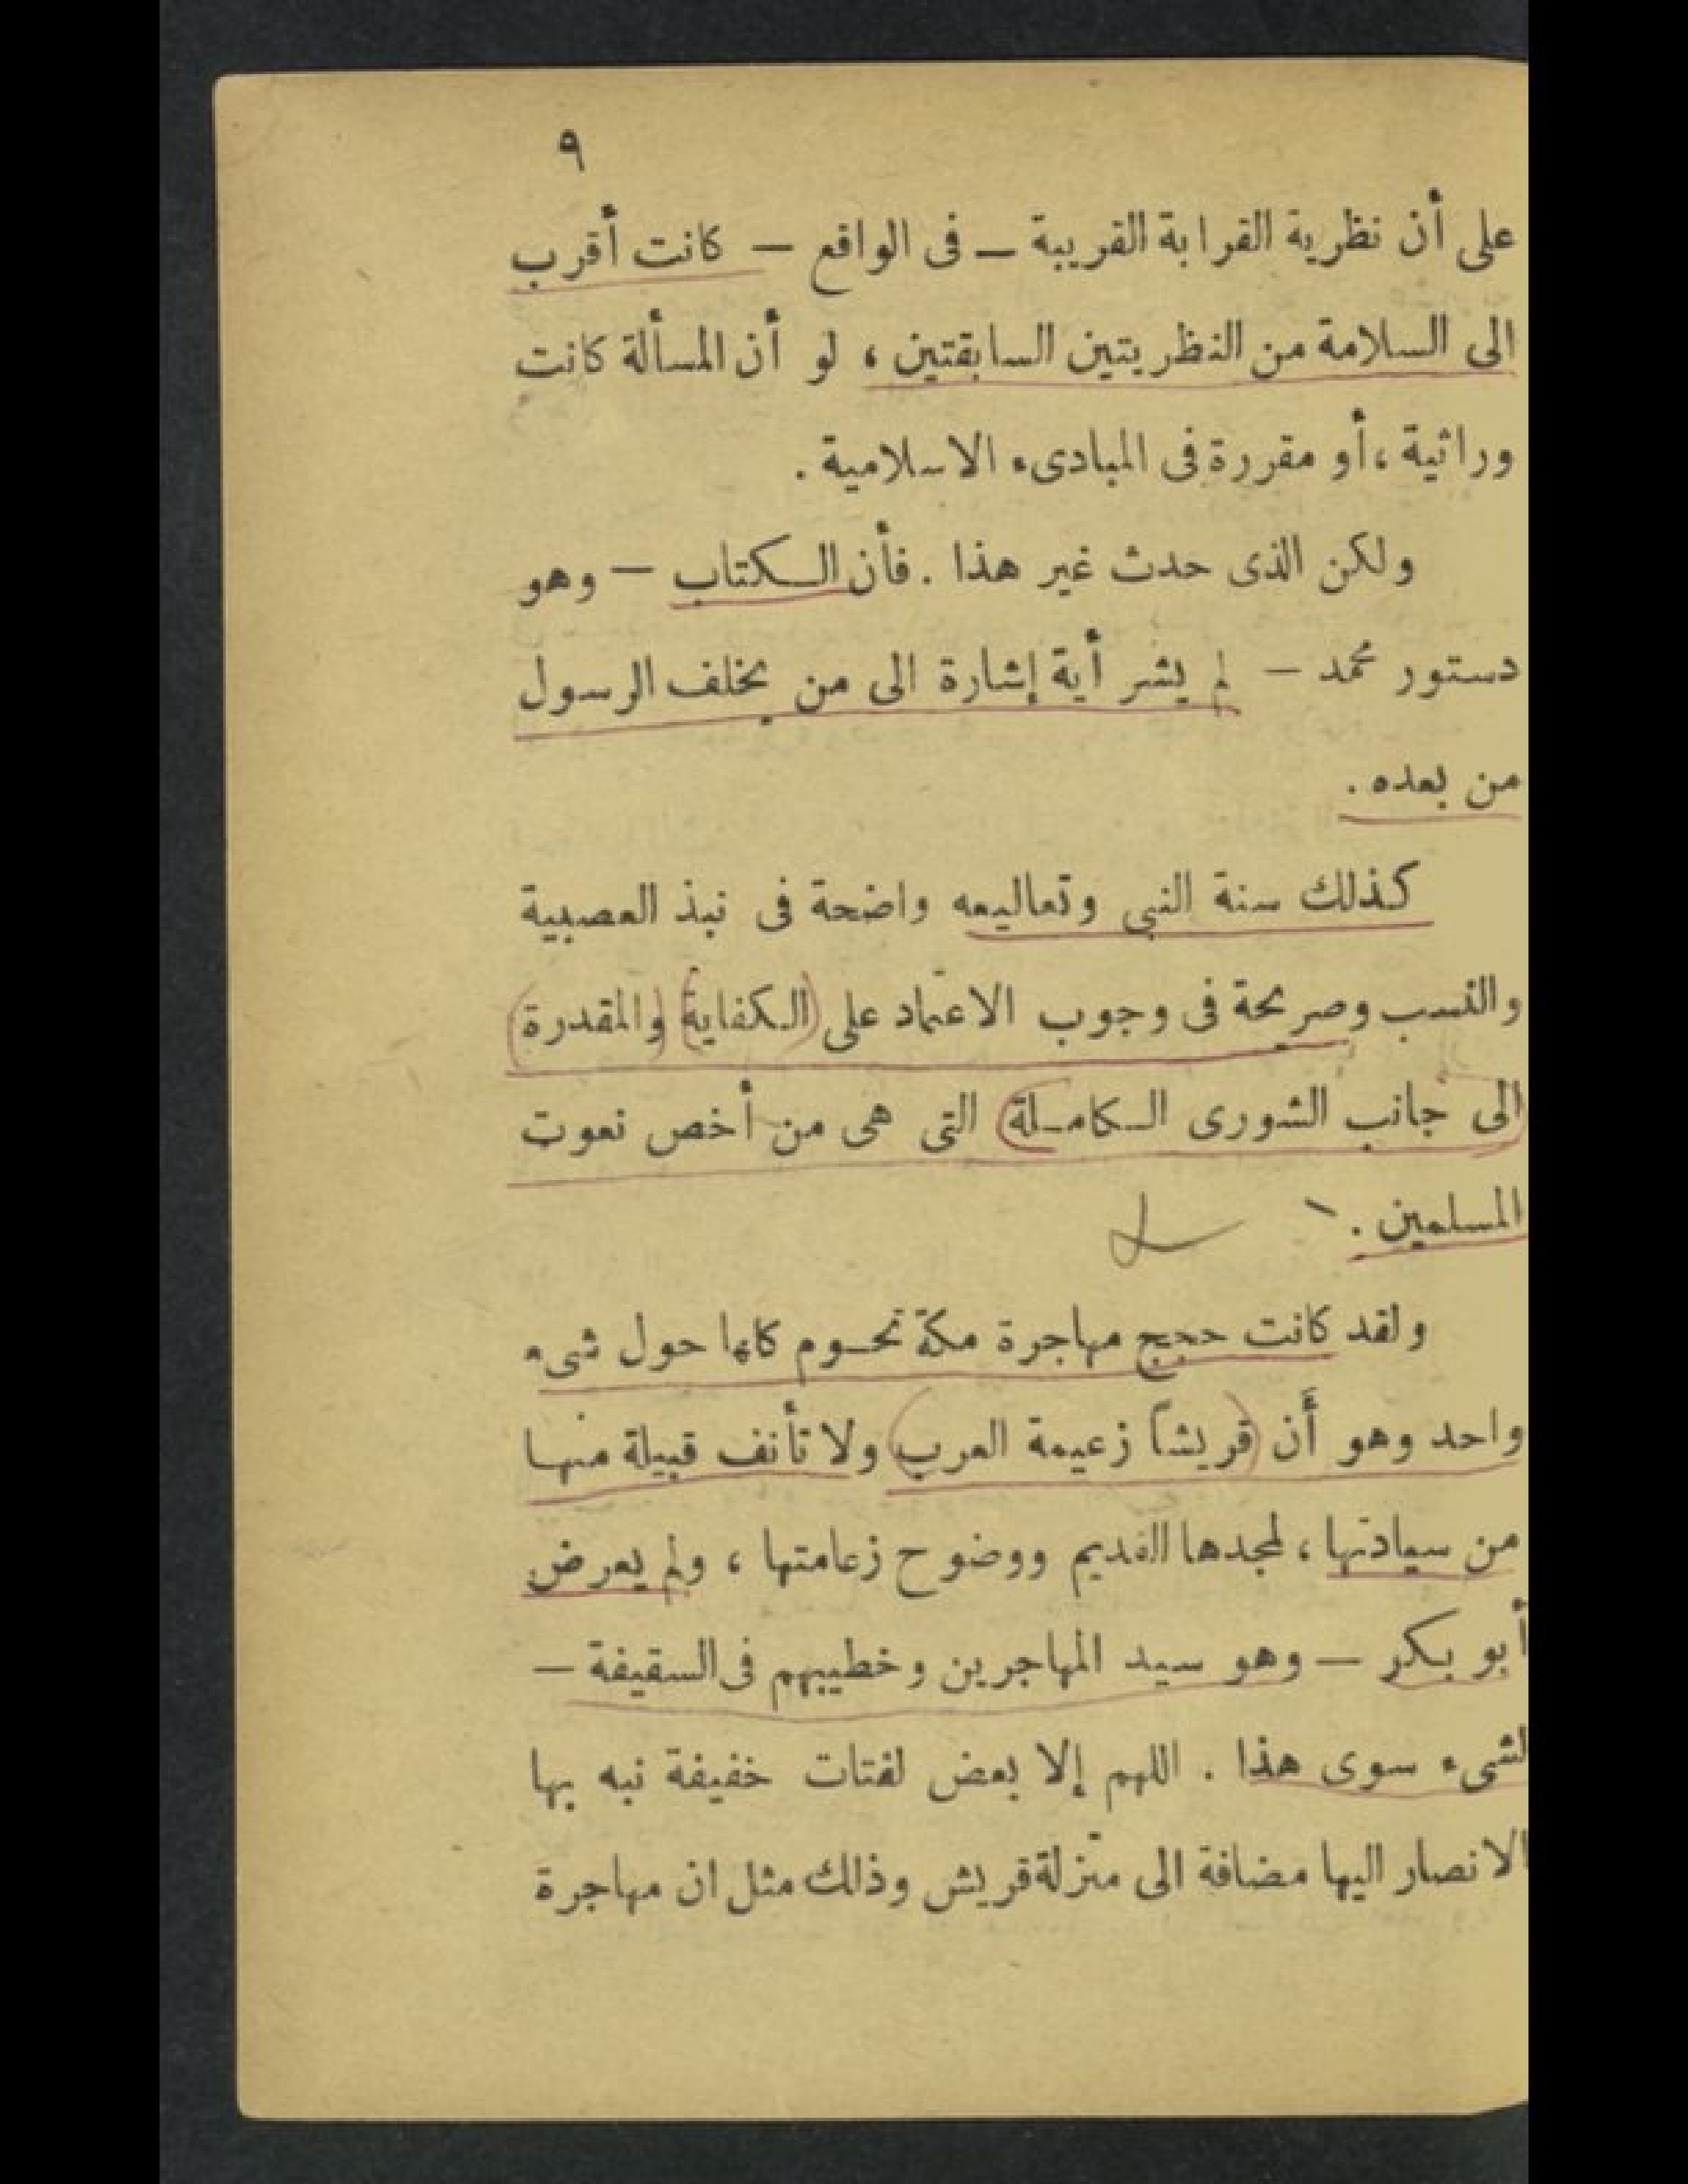 ٩
على أن نظرية القرابة القريبة — فى الواقع — كانت أقرب
الى السلامة من النظريتين السابقتين ، لو أن المسألة كانت
وراثية ، أو مقررة فى المبادىء الاسلامية .
ولكن الذى حدث غير هذا . فأن الكتاب — وهو
دستور محمد — لم يشر أية إشارة الى من يخلف الرسول
من بعده .
كذلك سنة النبى وتعاليمه واضحة فى نبذ العصبية
والنسب وصريحة فى وجوب الاعتماد على (الكفاية) (والمقدرة)
(الى جانب الشورى الكاملة) التى هى من أخص نعوت
المسلمين .
ولقد كانت حجج مهاجرة مكة تحوم كلها حول شىء
واحد وهو أن (قريشاً زعيمة العرب) ولا تأنف قبيلة منها
من سيادتها ، لمجدها القديم ووضوح زعامتها ، ولم يعرض
أبو بكر — وهو سيد المهاجرين وخطيبهم فى السقيفة —
لشىء سوى هذا . اللهم إلا بعض لفتات خفيفة نبه بها
الانصار اليها مضافة الى منزلة قريش وذلك مثل ان مهاجرة